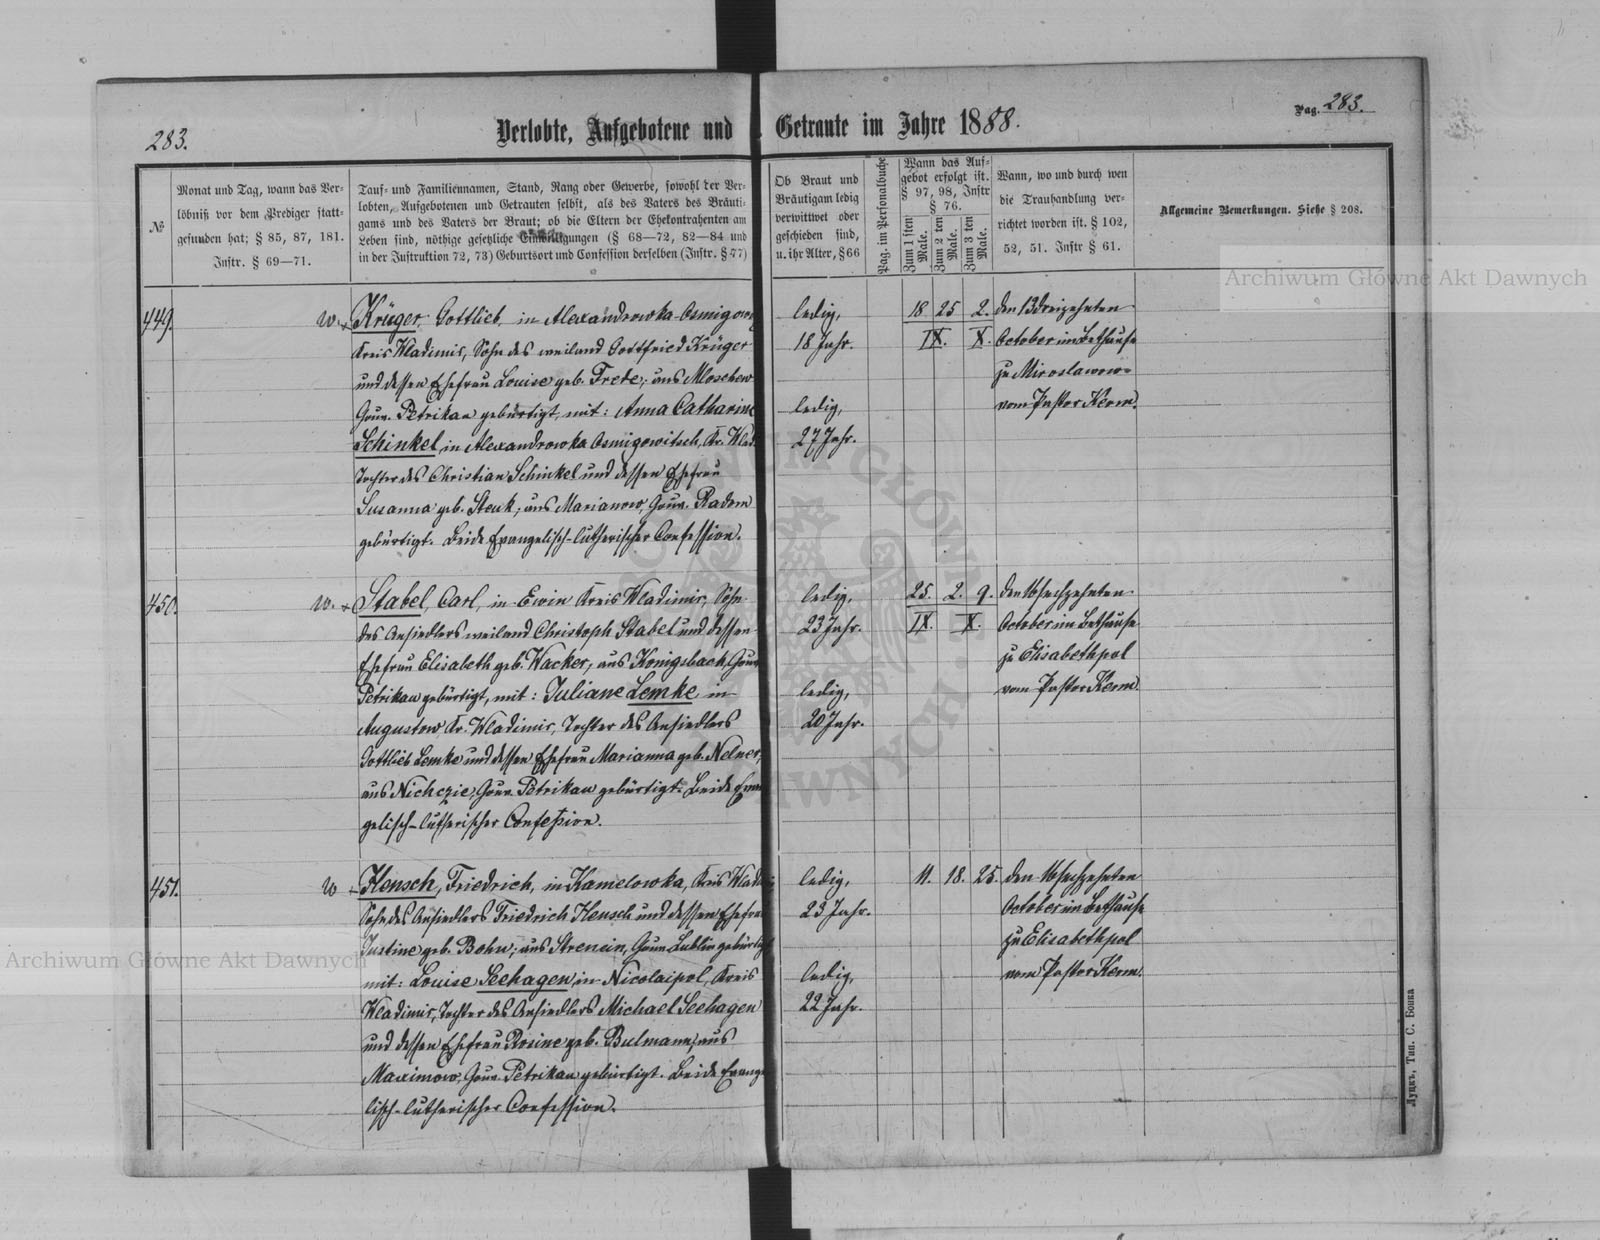 283.
Verlobte, Aufgebotene und Getraute im Jahre 1888.
Pag. 283.
№
Monat und Tag, wann das Ver-
löbniß vor dem Prediger statt-
gefunden hat; § 85, 87, 181.
Instr. § 69—71.
Tauf- und Familiennamen, Stand, Rang oder Gewerbe, sowohl der Ver-
lobten, Aufgebotenen und Getrauten selbst, als des Vaters des Bräuti-
gams und des Vaters der Braut; ob die Eltern der Ehekontrahenten am
Leben sind, nöthige gesetzliche Einwilligungen (§ 68—72, 82—84 und
in der Instruktion 72, 73) Geburtsort und Confession derselben (Instr. § 77)
Ob Braut und
Bräutigam ledig
verwittwet oder
geschieden sind,
u. ihr Alter, § 66
Pag. im Personalbuche
Wann das Auf-
gebot erfolgt ist.
§ 97, 98, Instr
§ 76.
Zum 1 sten
Male.
Zum 2 ten
Male.
Zum 3 ten
Male.
Wann, wo und durch wen
die Trauhandlung ver-
richtet worden ist. § 102,
52, 51. Instr § 61.
Allgemeine Bemerkungen. Siehe § 208.
449.
w.
Krüger, Gottlieb, in Alexandrowka-Osmigow
Kreis Wladimir, Sohn des weiland Gottfried Krüger
und dessen Ehefrau Louise geb. Frede; aus Moschew
Gouv. Petrikau gebürtigt, mit: Anna Catharine
Schinkel, in Alexandrowka Osmigowitsch, Kr. Wlad
Tochter des Christian Schinkel und dessen Ehefrau
Susanna geb. Steuk; aus Marianow, Gouv. Radom
gebürtigt. Beide Evangelisch-lutherischer Confession.
ledig,
18 Jahr.
ledig,
27 Jahr.
18 25 2.
IX. X.
den 13 dreizehnten
October im Bethause
zu Miroslawow
vom Pastor Kerm.
450.
w.
Stabel, Carl, in Ewin Kreis Wladimir, Sohn
des Ansiedlers weiland Christoph Stabel und dessen
Ehefrau Elisabeth geb. Wacker, aus Königsbach, Gouv
Petrikau gebürtigt, mit: Juliane Lemke, in
Augustow, Kr. Wladimir, Tochter des Ansiedlers
Gottlieb Lemke und dessen Ehefrau Marianna geb. Nelner,
aus Nichczie, Gouv. Petrikau gebürtigt. Beide Evan
gelisch-lutherischer Confession.
ledig,
23 Jahr.
ledig,
20 Jahr.
25. 2. 9.
IX. X.
den 16 sechzehnten
October im Bethause
zu Elisabethpol
vom Pastor Kerm.
451.
w
Hensch, Friedrich, in Kamelowka, Kreis Wladi
Sohn des Ansiedlers Friedrich Hensch und dessen Ehefrau
Justine geb. Bohn; aus Strencin, Gouv. Lublin gebürtigt
mit: Louise Seehagen, in Nicolaipol, Kreis
Wladimir, Tochter des Ansiedlers Michael Seehagen
und dessen Ehefrau Rosine geb. Bulmann; aus
Maximow, Gouv. Petrikau gebürtigt. Beide Evange
lisch-lutherischer Confession.
ledig,
23 Jahr.
ledig,
22 Jahr.
11. 18. 25.
den 16 sechzehnten
October im Bethause
zu Elisabethpol
vom Pastor Kerm.
Луцкъ, Тип. С. Бонка
Archiwum Główne Akt Dawnych
Archiwum Główne Akt Dawnych